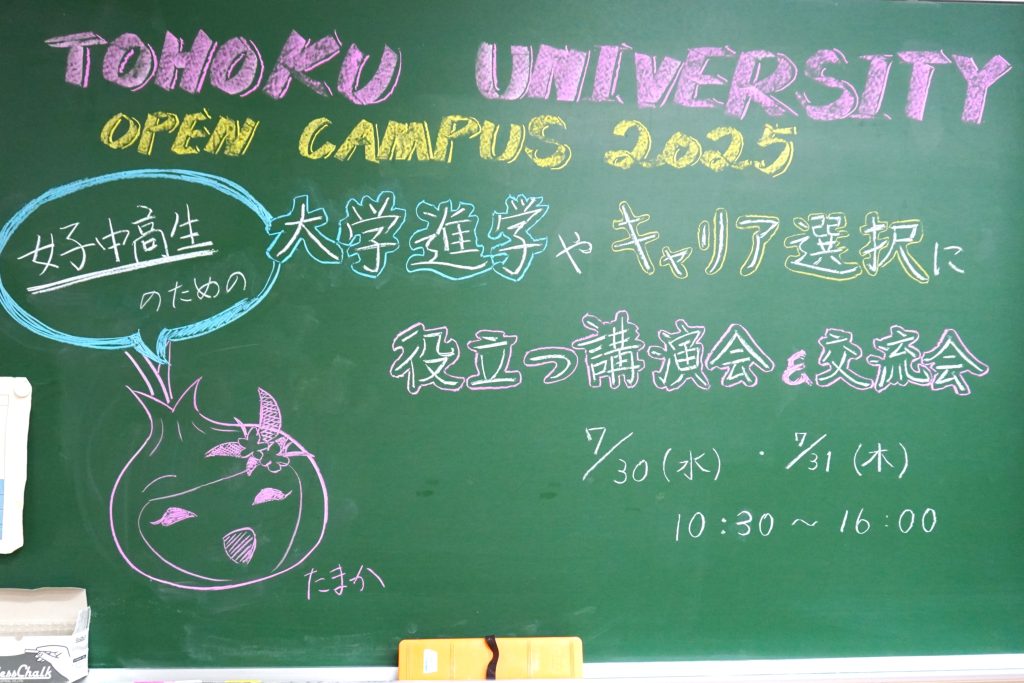 TOHOKU UNIVERSITY
OPEN CAMPUS 2025
女子中高生
のための
大学進学や キャリア選択に
役立つ講演会&交流会
7/30(水) ・ 7/31(木)
10:30～16:00
たまか
essChalk